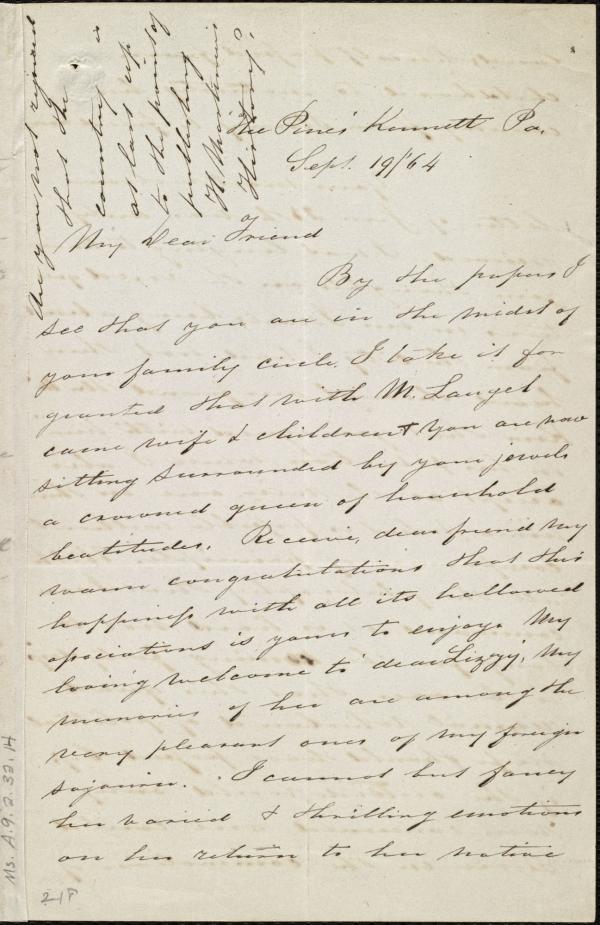 The Pines Kennett Pa.
Sept. 19/64
My Dear Friend
By the papers I
see that you are in the midst of
your family circle. I take it for
granted that with M. Laugel
came wife & children & you are now
sitting surrounded by your jewels
a crowned queen of household
beatitudes. Receive, dear friend my
warm congratulations that this
happiness with all its hallowed
associations is yours to enjoy. My
loving welcome to dear Lizzy, My
memories of her are among the
very pleasant ones of my foreign
sojourn. I cannot but fancy
her varied & thrilling emotions
on her return to her native
Are you not rejoiced
that the
country is
at last up
to the point of
publishing
H. Martineau's
History?
Ms. A.9.2.32.14